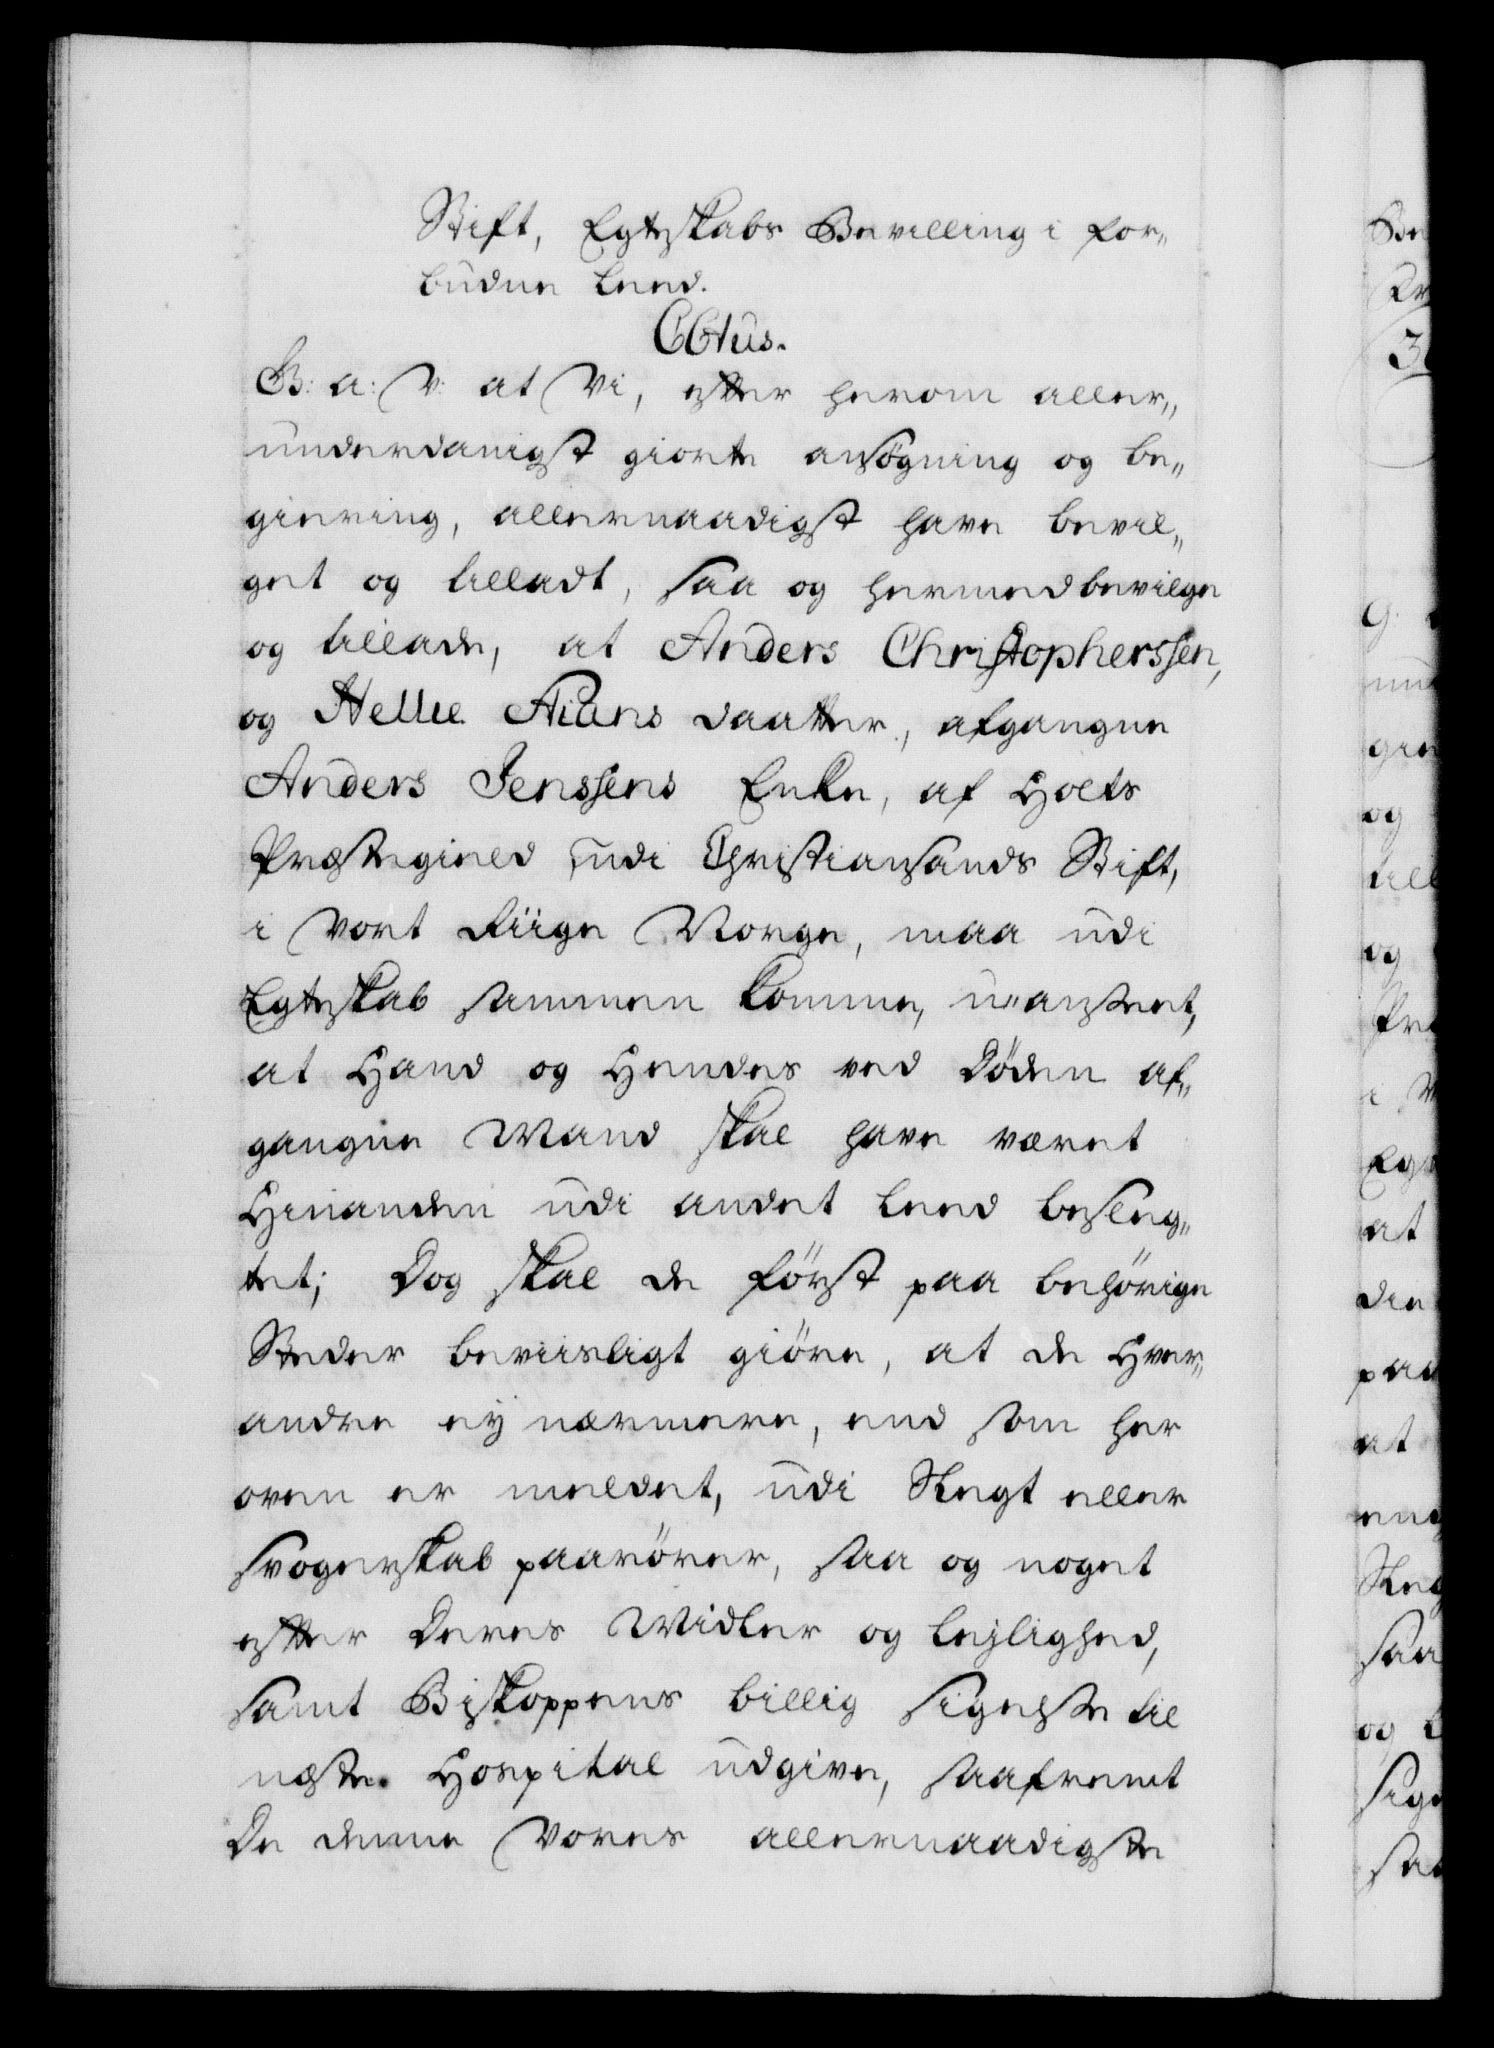 Stift, Egteskabs Bevilling i for„
budne Leed.
C6tus.
G: a: V: at Vi, efter herom aller„
underdanigst giorte ansögning og be„
giering, allernaadigst have bevil„
get og tilladt, saa og hermed bevilge
og tillade, at Anders Christopherssen,
og Hellie Aians daatter, afgangne
Anders Jenssens Enke, af Holts
Præstegield udi Christiansands Stift,
i Vort Riige Norge, maa udi
Egteskab sammen komme, u„anseet,
at Hand og Hendes ved Döden af„
gangne Mand skal have været
Hinanden udi andet Leed beslæg„
tet; Dog skal de först paa behörige
Steder beviisligt giöre, at de Hver„
andre eÿ nærmere, end som her
oven er meldet, udi Slegt eller
Svogerskab paarörer, saa og noget
efter Deres Midler og Lejlighed,
samt Biskoppens billig sigelse til
næste Hospital udgive, saafremt
De denne Vores allernaadigste
Be
G:
og
og
i V
at
paa
at
Sleg
saa
og L